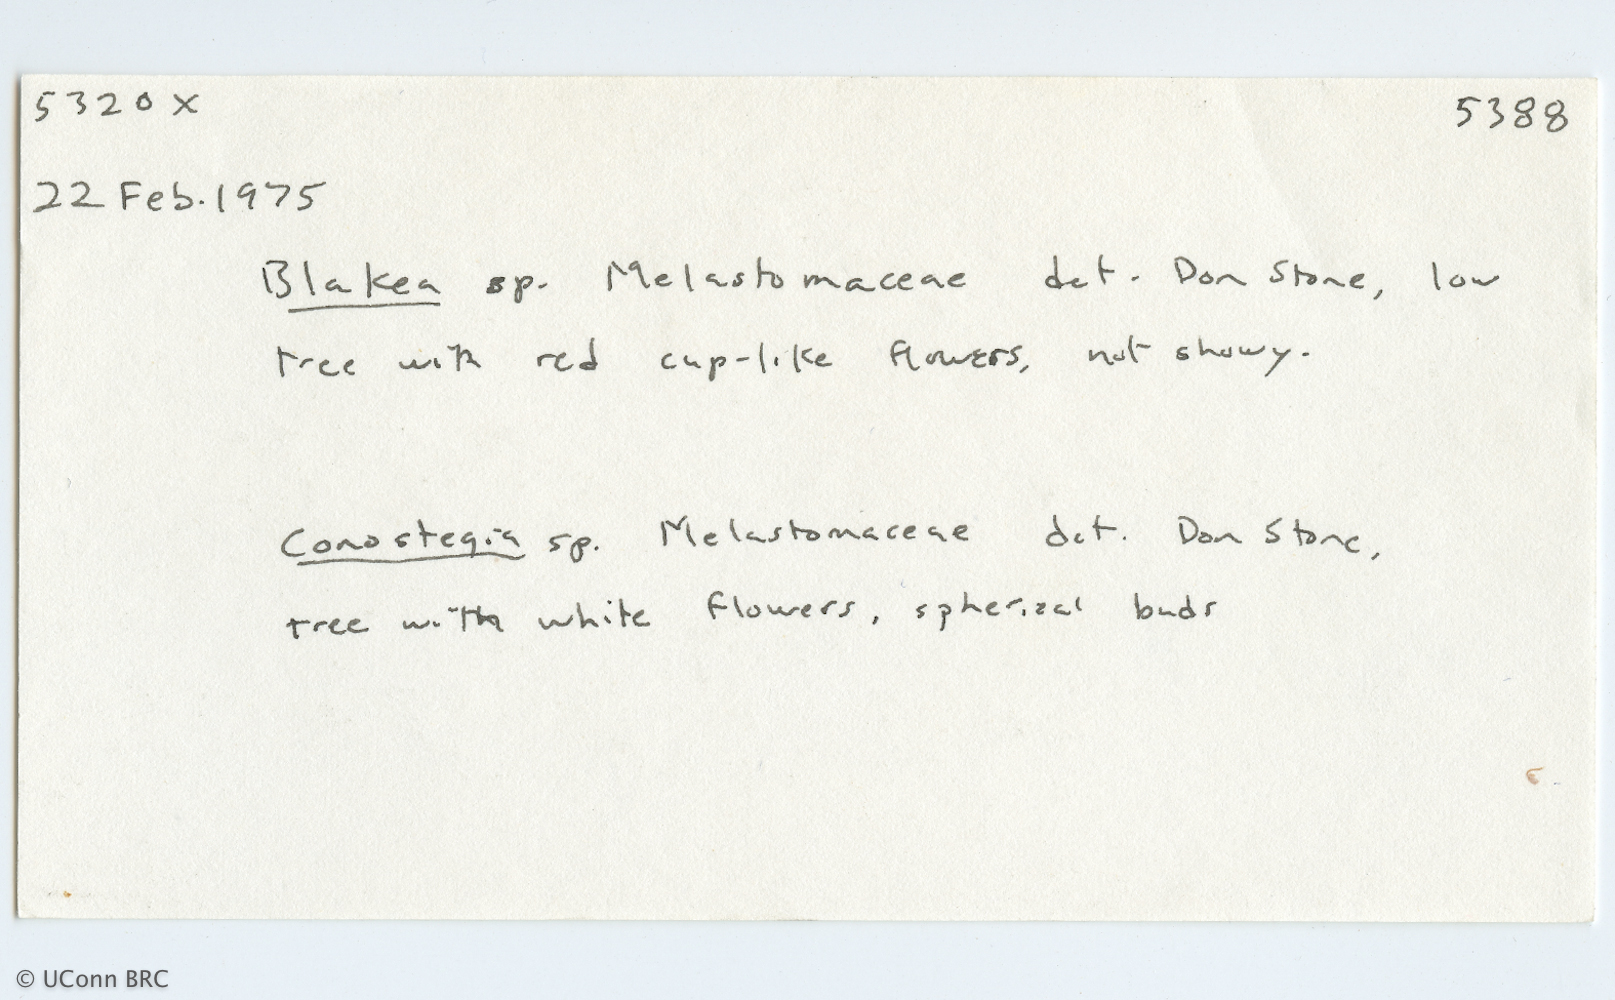 5320x 5388
22 Feb. 1975
Blakea sp. Melastomaceae det. Don Stone, low
tree with red cup-like flowers, not showy.
Conostegia sp. Melastomaceae det. Don Stone,
tree with white flowers, spherical buds
© UConn BRC